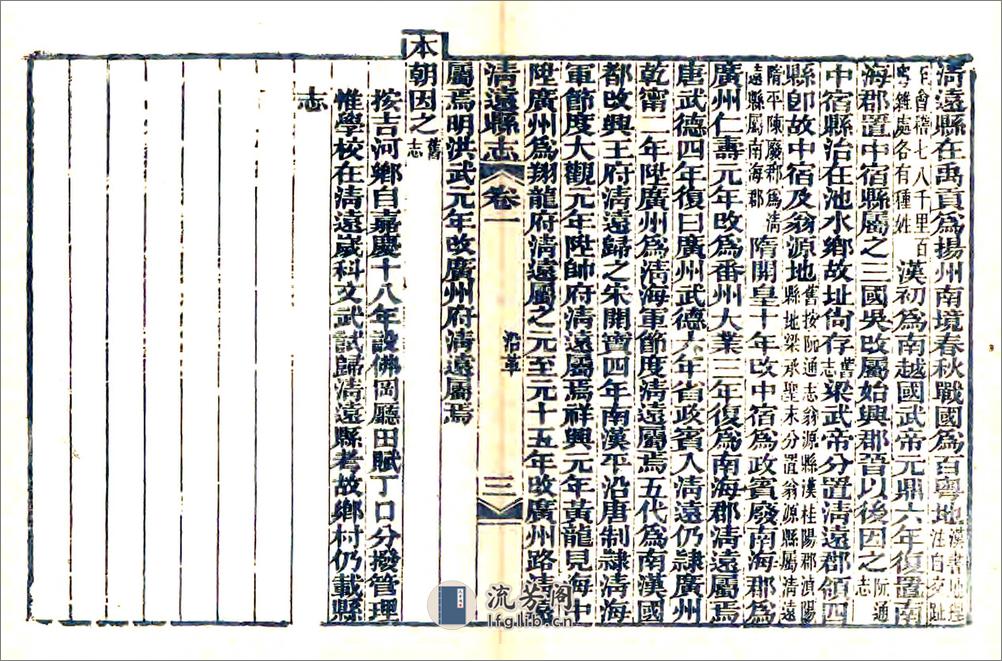 清遠縣在禹貢爲揚州南境春秋戰國爲百粵地漢書地理注自交趾
至會稽七八千里百粵雜處各有種姓漢初爲南越國武帝元鼎六年復置南
海郡置中宿縣屬之三國吳改屬始興郡晉以後因之阮通志
中宿縣治在池水鄉故址尙存舊志梁武帝分置清遠郡領四
縣卽故中宿及翁源地舊按阮通志翁源縣漢桂陽郡湞陽縣地梁承聖末分置翁源縣屬清遠
隋平陳廢郡爲清遠縣屬南海郡隋開皇十年改中宿爲政賓廢南海郡爲
廣州仁壽元年改爲番州大業三年復爲南海郡清遠屬焉
唐武德四年復曰廣州武德六年省政賓入清遠仍隸廣州
乾甯二年陞廣州爲清海軍節度清遠屬焉五代爲南漢國
都改興王府清遠歸之宋開寶四年南漢平沿唐制隸清海
軍節度大觀元年陞帥府清遠屬焉祥興元年黃龍見海中
陞廣州爲翔龍府清遠屬之元至元十五年改廣州路清遠
清遠縣志 卷一 沿革 三
屬焉明洪武元年改廣州府清遠屬焉
本朝因之舊志
按吉河鄉自嘉慶十八年設佛岡廳田賦丁口分撥管理
惟學校在清遠歲科文武試歸清遠縣考故鄉村仍載縣
志
流芳閣
lfglib.cn